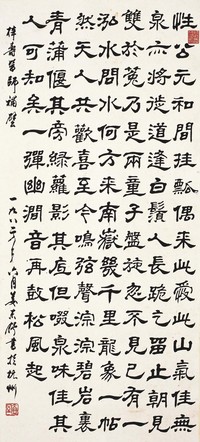 性公元和間挂瓢偶来此愛山氣佳無
泉亦將徙道逢白鬚人長跪之留止朝見
雙於菟乃是兩童子盤旋忽不見已有一
泓水問水何方来南嶽幾龍象一帖
然天人共歡喜至今鳴弦聲淙淙碧岩裏
青蒲偃其旁綠蘿影其底但啜泉味佳其
人可知矣一彈幽澗音再鼓松風起
一九八二年六月姜东舒書於杭州
師補壁